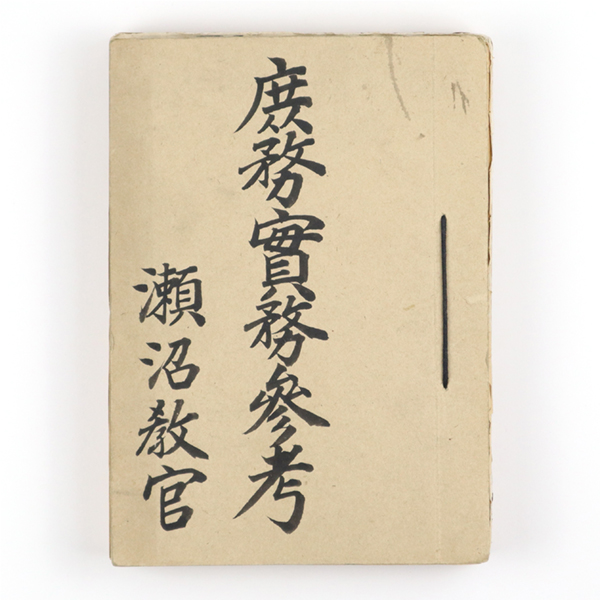 庶務實務參考
瀬沼教官